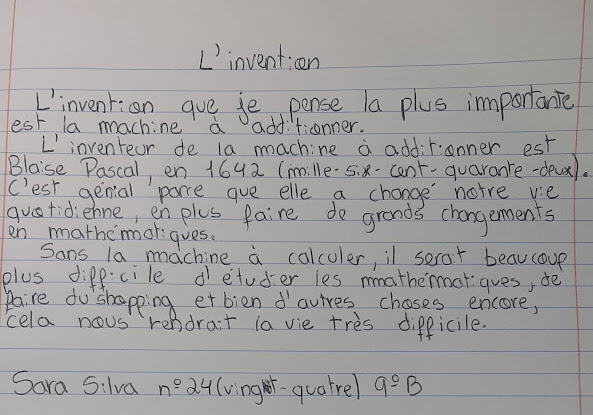 L'invention
L'invention que je pense la plus importante
est la machine à additionner.
L'inventeur de la machine à additionner est
Blaise Pascal, en 1642 (mille-six-cent-quarante-deux).
C'est génial parce que elle a changé notre vie
quotidienne, en plus faire de grands changements
en mathématiques.
Sans la machine à calculer, il serait beaucoup
plus difficile d'étudier les mathématiques, de
faire du shopping et bien d'autres choses encore,
cela nous rendrait la vie très difficile.
Sara Silva nº24 (vingt-quatre) 9ºB